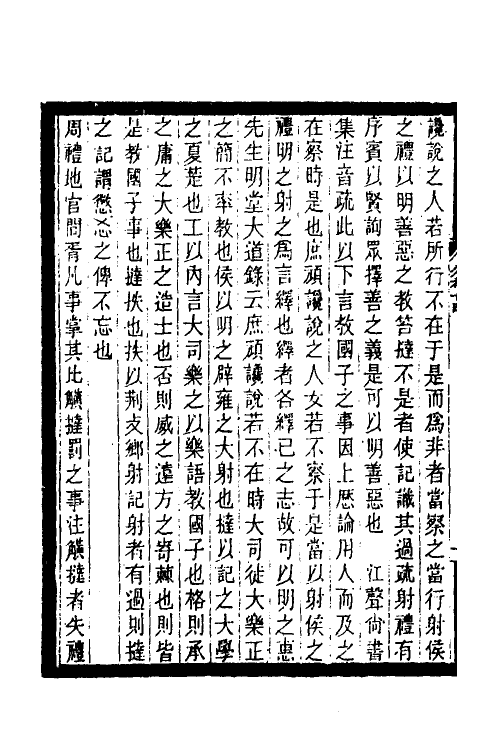 讒說之人若所行不在于是而爲非者當察之當行射侯
之禮以明善惡之教笞撻不是者使記識其過疏射禮有
序賓以賢詢眾擇善之義是可以明善惡也　江聲尙書
集注音疏此以下言教國子之事因上歷論用人而及之
在察時是也庶頑讒說之人女若不察于是當以射侯之
禮明之射之爲言繹也繹者各繹已之志故可以明之惠
先生明堂大道錄云庶頑讒說若不在時大司徒大樂正
之簡不率教也侯以明之辟雍之大射也撻以記之大學
之夏楚也工以內言大司樂之以樂語教國子也格則承
之庸之大樂正之造士也否則威之遠方之寄棘也則皆
是教國子事也撻抶也抶以荆支鄉射記射者有過則撻
之記謂懲忘之俾不忘也
周禮地官閭胥凡事掌其比觵撻罰之事注觵撻者失禮